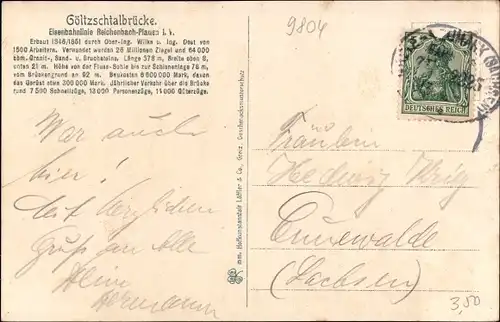 Göltzschtalbrücke.
Eisenbahnlinie Reichenbach-Plauen i. V.
Erbaut 1846/1851 durch Ober-Ing. Wilke u. Ing. Dost von
1500 Arbeitern. Verwendet wurden 26 Millionen Ziegel und 64000
cbm. Granit-, Sand- u. Bruchsteine. Länge 578 m, Breite oben 8,
unten 21 m. Höhe von der Fluss-Sohle bis zur Schienenlage 78 m,
vom Brückengrund an 92 m. Baukosten 6 600 000 Mark, davon
das Gerüst allein 300 000 Mark. Jährlicher Verkehr über die Brücke
rund 7 500 Schnellzüge, 13 000 Personenzüge, 11 000 Güterzüge.
9804
DEUTSCHES REICH
War auch
hier!
Mit herzlichem
Gruß an Alle
Dein
Hermann
Fräulein
Hedwig
Cunewalde
(Sachsen)
3,50
Löffler & Co., Greiz.